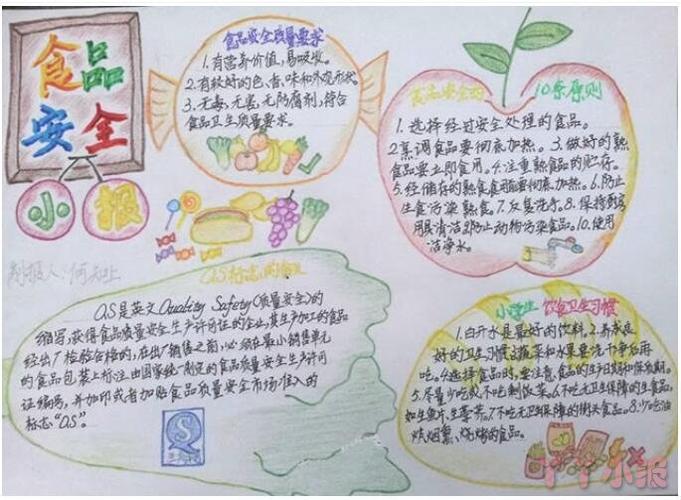 食品
安全
小报
食品安全质量要求
1.有营养价值,易吸收。
2.有较好的色、香、味和外观形状。
3、无毒,无害,无防腐剂,符合
食品卫生质量要求。
食品安全的 10条原则
1.选择经过安全处理的食品。
2烹调食品要彻底加热。3.做好的熟
食品要立即食用。4.注重熟食品的贮存。
5.经储存的熟食食用前要彻底加热。6.防止
生食污染熟食。7.反复洗手。8.保持厨房
用具清洁。9防止动物污染食品。10.使用
洁净水。
制报人:何
QS标志的
QS是英文Quality Safety(质量安全)的
缩写,获得食品质量安全生产许可证的企业,其生产加工的食品
经出厂检验合格的,在出厂销售之前,必须在最小销售单元
的食品包装上标注由国家统一制定的食品质量安全生产许可
证编号,并加印或者加贴食品质量安全市场准入的
标志"QS"。
小学生 饮食卫生习惯
1.白开水是最好的饮料。2.养成良
好的卫生习惯3蔬菜和水果要洗干净后再
吃。4选择食品时,要注意食品的生产日期和保质期。
5.尽量少吃或不吃剩饭菜。6.不吃无卫生保障的生食品,
如生鱼片、生荸荠。7.不吃无卫生保障的街头食品。8.少吃油
炸、烟熏、烧烤的食品。
个个小报